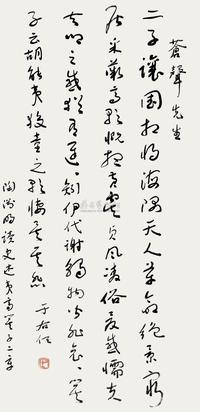 蒼聲先生
二子讓国相將海隅天人革命絕景窮
居采薇高歌慨想黃虞貞風凌俗爰感懦夫
去鄉之感猶有遲遲矧伊代謝觸物皆非哀哀箕
子云胡能夷狡童之歌悽矣其悲
陶淵明讀史述夷齊箕子二章
于右任